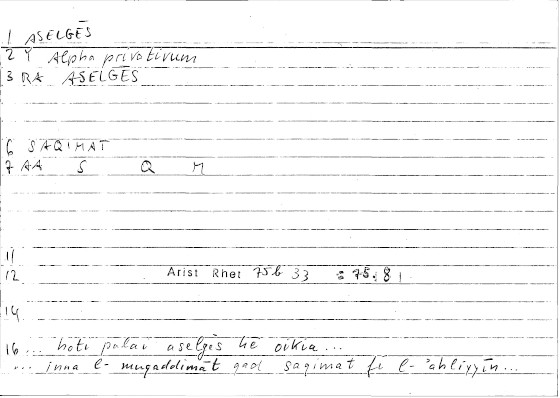 1 ASELGĒS
2 Y Alpha privativum
3 RA ASELGES
6 SAQIMAT
7 AA S Q M
11
12 Arist Rhet 75b 33 = 75.81
14
16 ... hoti palai aselgēs hē oikia ...
... inna l- muqaddimāt qad saqimat fī l- 'ahliyyīn ...